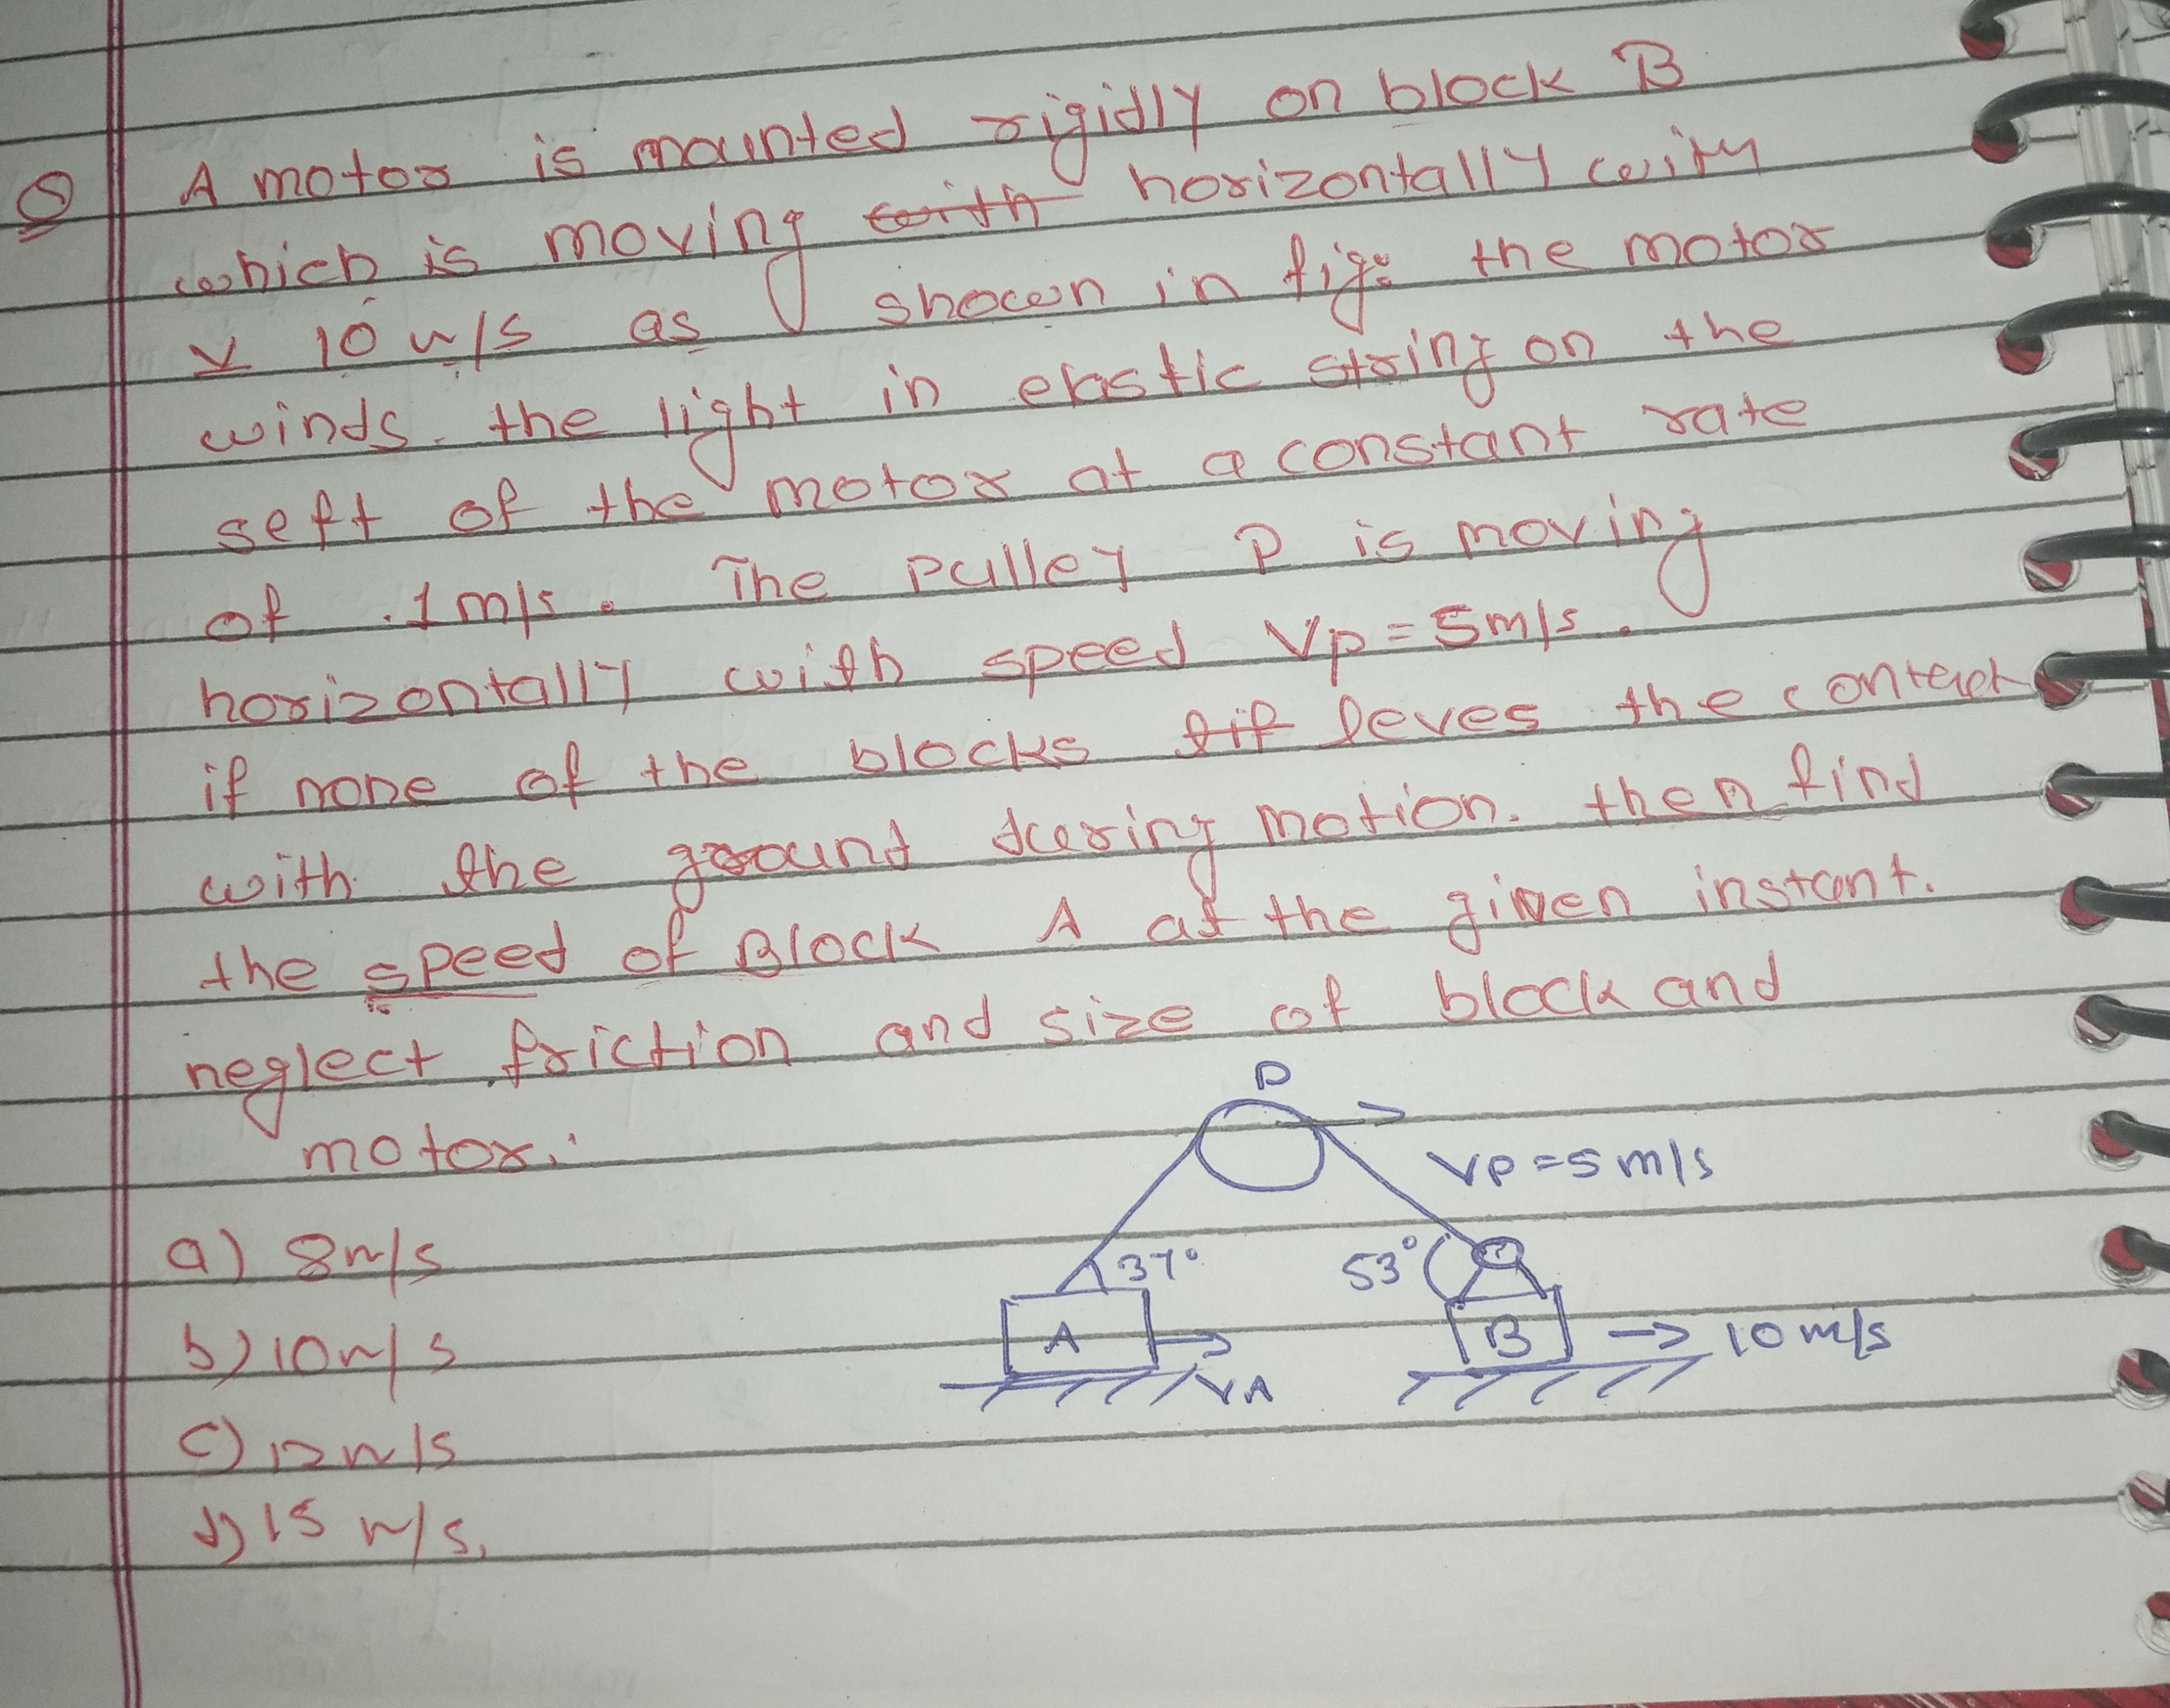 Q A motor is mounted rigidly on block B
which is moving with horizontally with
v 10 m/s as shown in fig. the motor
winds. the light in elastic string on the
seft of the motor at a constant rate
of .1 m/s. The pulley P is moving
horizontally with speed Vp = 5m/s.
if none of the blocks leves the contact
with the ground during motion. then find
the speed of Block A at the given instant.
neglect friction and size of block and
motor.
P
VP = 5 m/s
37°
53°
A
VA
B
10 m/s
a) 8 m/s
b) 10 m/s
c) 12 m/s
d) 15 m/s.